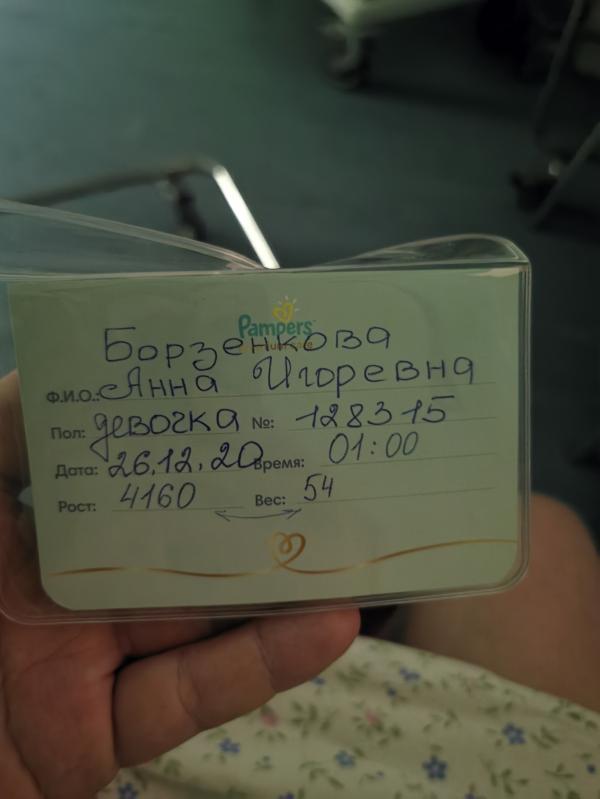 Pampers
Борзенкова
Ф.И.О.: Анна Игоревна
Пол: девочка №: 128315
Дата: 26.12.20 Время: 01:00
Рост: 4160 Вес: 54